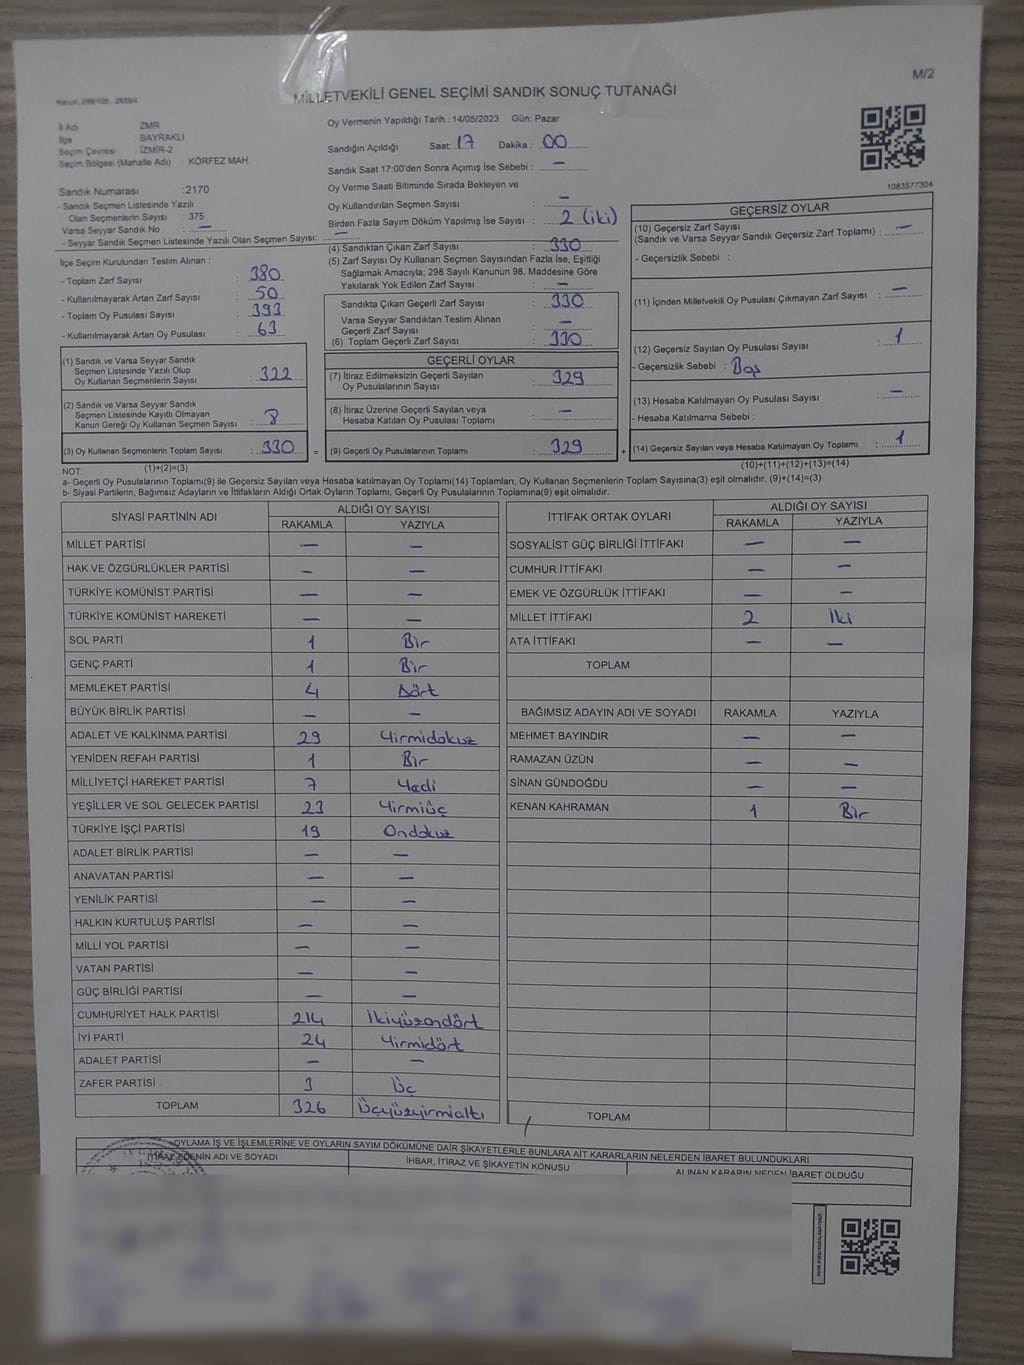 M/2
MİLLETVEKİLİ GENEL SEÇİMİ SANDIK SONUÇ TUTANAĞI
İl Adı ZMR
İlçe BAYRAKLI
Seçim Çevresi İZMİR-2
Seçim Bölgesi (Mahalle Adı) : KÖRFEZ MAH.
Oy Vermenin Yapıldığı Tarih : 14/05/2023 Gün: Pazar
Sandığın Açıldığı Saat: 17 Dakika : 00
Sandık Saat 17:00'den Sonra Açımış İse Sebebi : —
Oy Verme Saati Bitiminde Sırada Bekleyen ve
Oy Kullandırılan Seçmen Sayısı : —
Birden Fazla Sayım Döküm Yapılmış İse Sayısı : 2 (iki)
1083577304
Sandık Numarası :2170
- Sandık Seçmen Listesinde Yazılı
Olan Seçmenlerin Sayısı : 375
Varsa Seyyar Sandık No : —
- Seyyar Sandık Seçmen Listesinde Yazılı Olan Seçmen Sayısı: —
İlçe Seçim Kurulundan Teslim Alınan :
- Toplam Zarf Sayısı : 380
- Kullanılmayarak Artan Zarf Sayısı : 50
- Toplam Oy Pusulası Sayısı : 393
- Kullanılmayarak Artan Oy Pusulası : 63
(1) Sandık ve Varsa Seyyar Sandık
Seçmen Listesinde Yazılı Olup
Oy Kullanan Seçmenlerin Sayısı : 322
(2) Sandık ve Varsa Seyyar Sandık
Seçmen Listesinde Kayıtlı Olmayan
Kanun Gereği Oy Kullanan Seçmen Sayısı : 8
(3) Oy Kullanan Seçmenlerin Toplam Sayısı : 330
(4) Sandıktan Çıkan Zarf Sayısı : 330
(5) Zarf Sayısı Oy Kullanan Seçmen Sayısından Fazla İse, Eşitliği
Sağlamak Amacıyla; 298 Sayılı Kanunun 98. Maddesine Göre
Yakılarak Yok Edilen Zarf Sayısı : —
Sandıkta Çıkan Geçerli Zarf Sayısı : 330
Varsa Seyyar Sandıktan Teslim Alınan
Geçerli Zarf Sayısı : —
(6) Toplam Geçerli Zarf Sayısı : 330
GEÇERLİ OYLAR
(7) İtiraz Edilmeksizin Geçerli Sayılan
Oy Pusulalarının Sayısı : 329
(8) İtiraz Üzerine Geçerli Sayılan veya
Hesaba Katılan Oy Pusulası Toplamı : —
= (9) Geçerli Oy Pusulalarının Toplamı : 329 +
GEÇERSİZ OYLAR
(10) Geçersiz Zarf Sayısı
(Sandık ve Varsa Seyyar Sandık Geçersiz Zarf Toplamı) : —
- Geçersizlik Sebebi :
(11) İçinden Milletvekili Oy Pusulası Çıkmayan Zarf Sayısı : —
(12) Geçersiz Sayılan Oy Pusulası Sayısı : 1
- Geçersizlik Sebebi : Boş
(13) Hesaba Katılmayan Oy Pusulası Sayısı : —
- Hesaba Katılmama Sebebi :
(14) Geçersiz Sayılan veya Hesaba Katılmayan Oy Toplamı : 1
NOT: (1)+(2)=(3)
(10)+(11)+(12)+(13)=(14)
a- Geçerli Oy Pusulalarının Toplamı(9) ile Geçersiz Sayılan veya Hesaba Katılmayan Oy Toplamı(14) Toplamları, Oy Kullanan Seçmenlerin Toplam Sayısına(3) eşit olmalıdır. (9)+(14)=(3)
b- Siyasi Partilerin, Bağımsız Adayların ve İttifakların Aldığı Ortak Oyların Toplamı, Geçerli Oy Pusulalarının Toplamına(9) eşit olmalıdır.
SİYASİ PARTİNİN ADI ALDIĞI OY SAYISI
RAKAMLA YAZIYLA
MİLLET PARTİSİ — —
HAK VE ÖZGÜRLÜKLER PARTİSİ — —
TÜRKİYE KOMÜNİST PARTİSİ — —
TÜRKİYE KOMÜNİST HAREKETİ — —
SOL PARTİ 1 Bir
GENÇ PARTİ 1 Bir
MEMLEKET PARTİSİ 4 Dört
BÜYÜK BİRLİK PARTİSİ — —
ADALET VE KALKINMA PARTİSİ 29 Yirmidokuz
YENİDEN REFAH PARTİSİ 1 Bir
MİLLİYETÇİ HAREKET PARTİSİ 7 Yedi
YEŞİLLER VE SOL GELECEK PARTİSİ 23 Yirmiüç
TÜRKİYE İŞÇİ PARTİSİ 19 Ondokuz
ADALET BİRLİK PARTİSİ — —
ANAVATAN PARTİSİ — —
YENİLİK PARTİSİ — —
HALKIN KURTULUŞ PARTİSİ — —
MİLLİ YOL PARTİSİ — —
VATAN PARTİSİ — —
GÜÇ BİRLİĞİ PARTİSİ — —
CUMHURİYET HALK PARTİSİ 214 İkiyüzondört
İYİ PARTİ 24 Yirmidört
ADALET PARTİSİ — —
ZAFER PARTİSİ 3 Üç
TOPLAM 326 Üçyüzyirmialtı
İTTİFAK ORTAK OYLARI ALDIĞI OY SAYISI
RAKAMLA YAZIYLA
SOSYALİST GÜÇ BİRLİĞİ İTTİFAKI — —
CUMHUR İTTİFAKI — —
EMEK VE ÖZGÜRLÜK İTTİFAKI — —
MİLLET İTTİFAKI 2 İki
ATA İTTİFAKI — —
TOPLAM
BAĞIMSIZ ADAYIN ADI VE SOYADI RAKAMLA YAZIYLA
MEHMET BAYINDIR — —
RAMAZAN ÜZÜN — —
SİNAN GÜNDOĞDU — —
KENAN KAHRAMAN 1 Bir
TOPLAM
OYLAMA İŞ VE İŞLEMLERİNE VE OYLARIN SAYIM DÖKÜMÜNE DAİR ŞİKAYETLERLE BUNLARA AİT KARARLARIN NELERDEN İBARET BULUNDUKLARI
İTİRAZ EDENİN ADI VE SOYADI İHBAR, İTİRAZ VE ŞİKAYETİN KONUSU ALINAN KARARIN NEDEN İBARET OLDUĞU